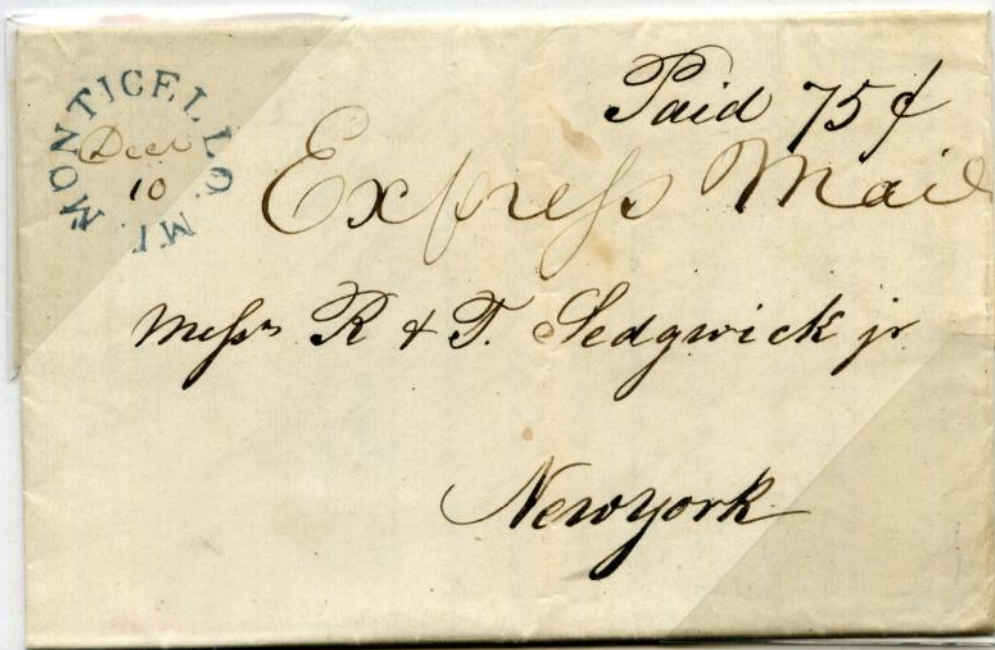 MONTICELLO. MI.
Decr
10
Paid 75¢
Express Mail
Messrs R & T. Sedgwick jr
New york